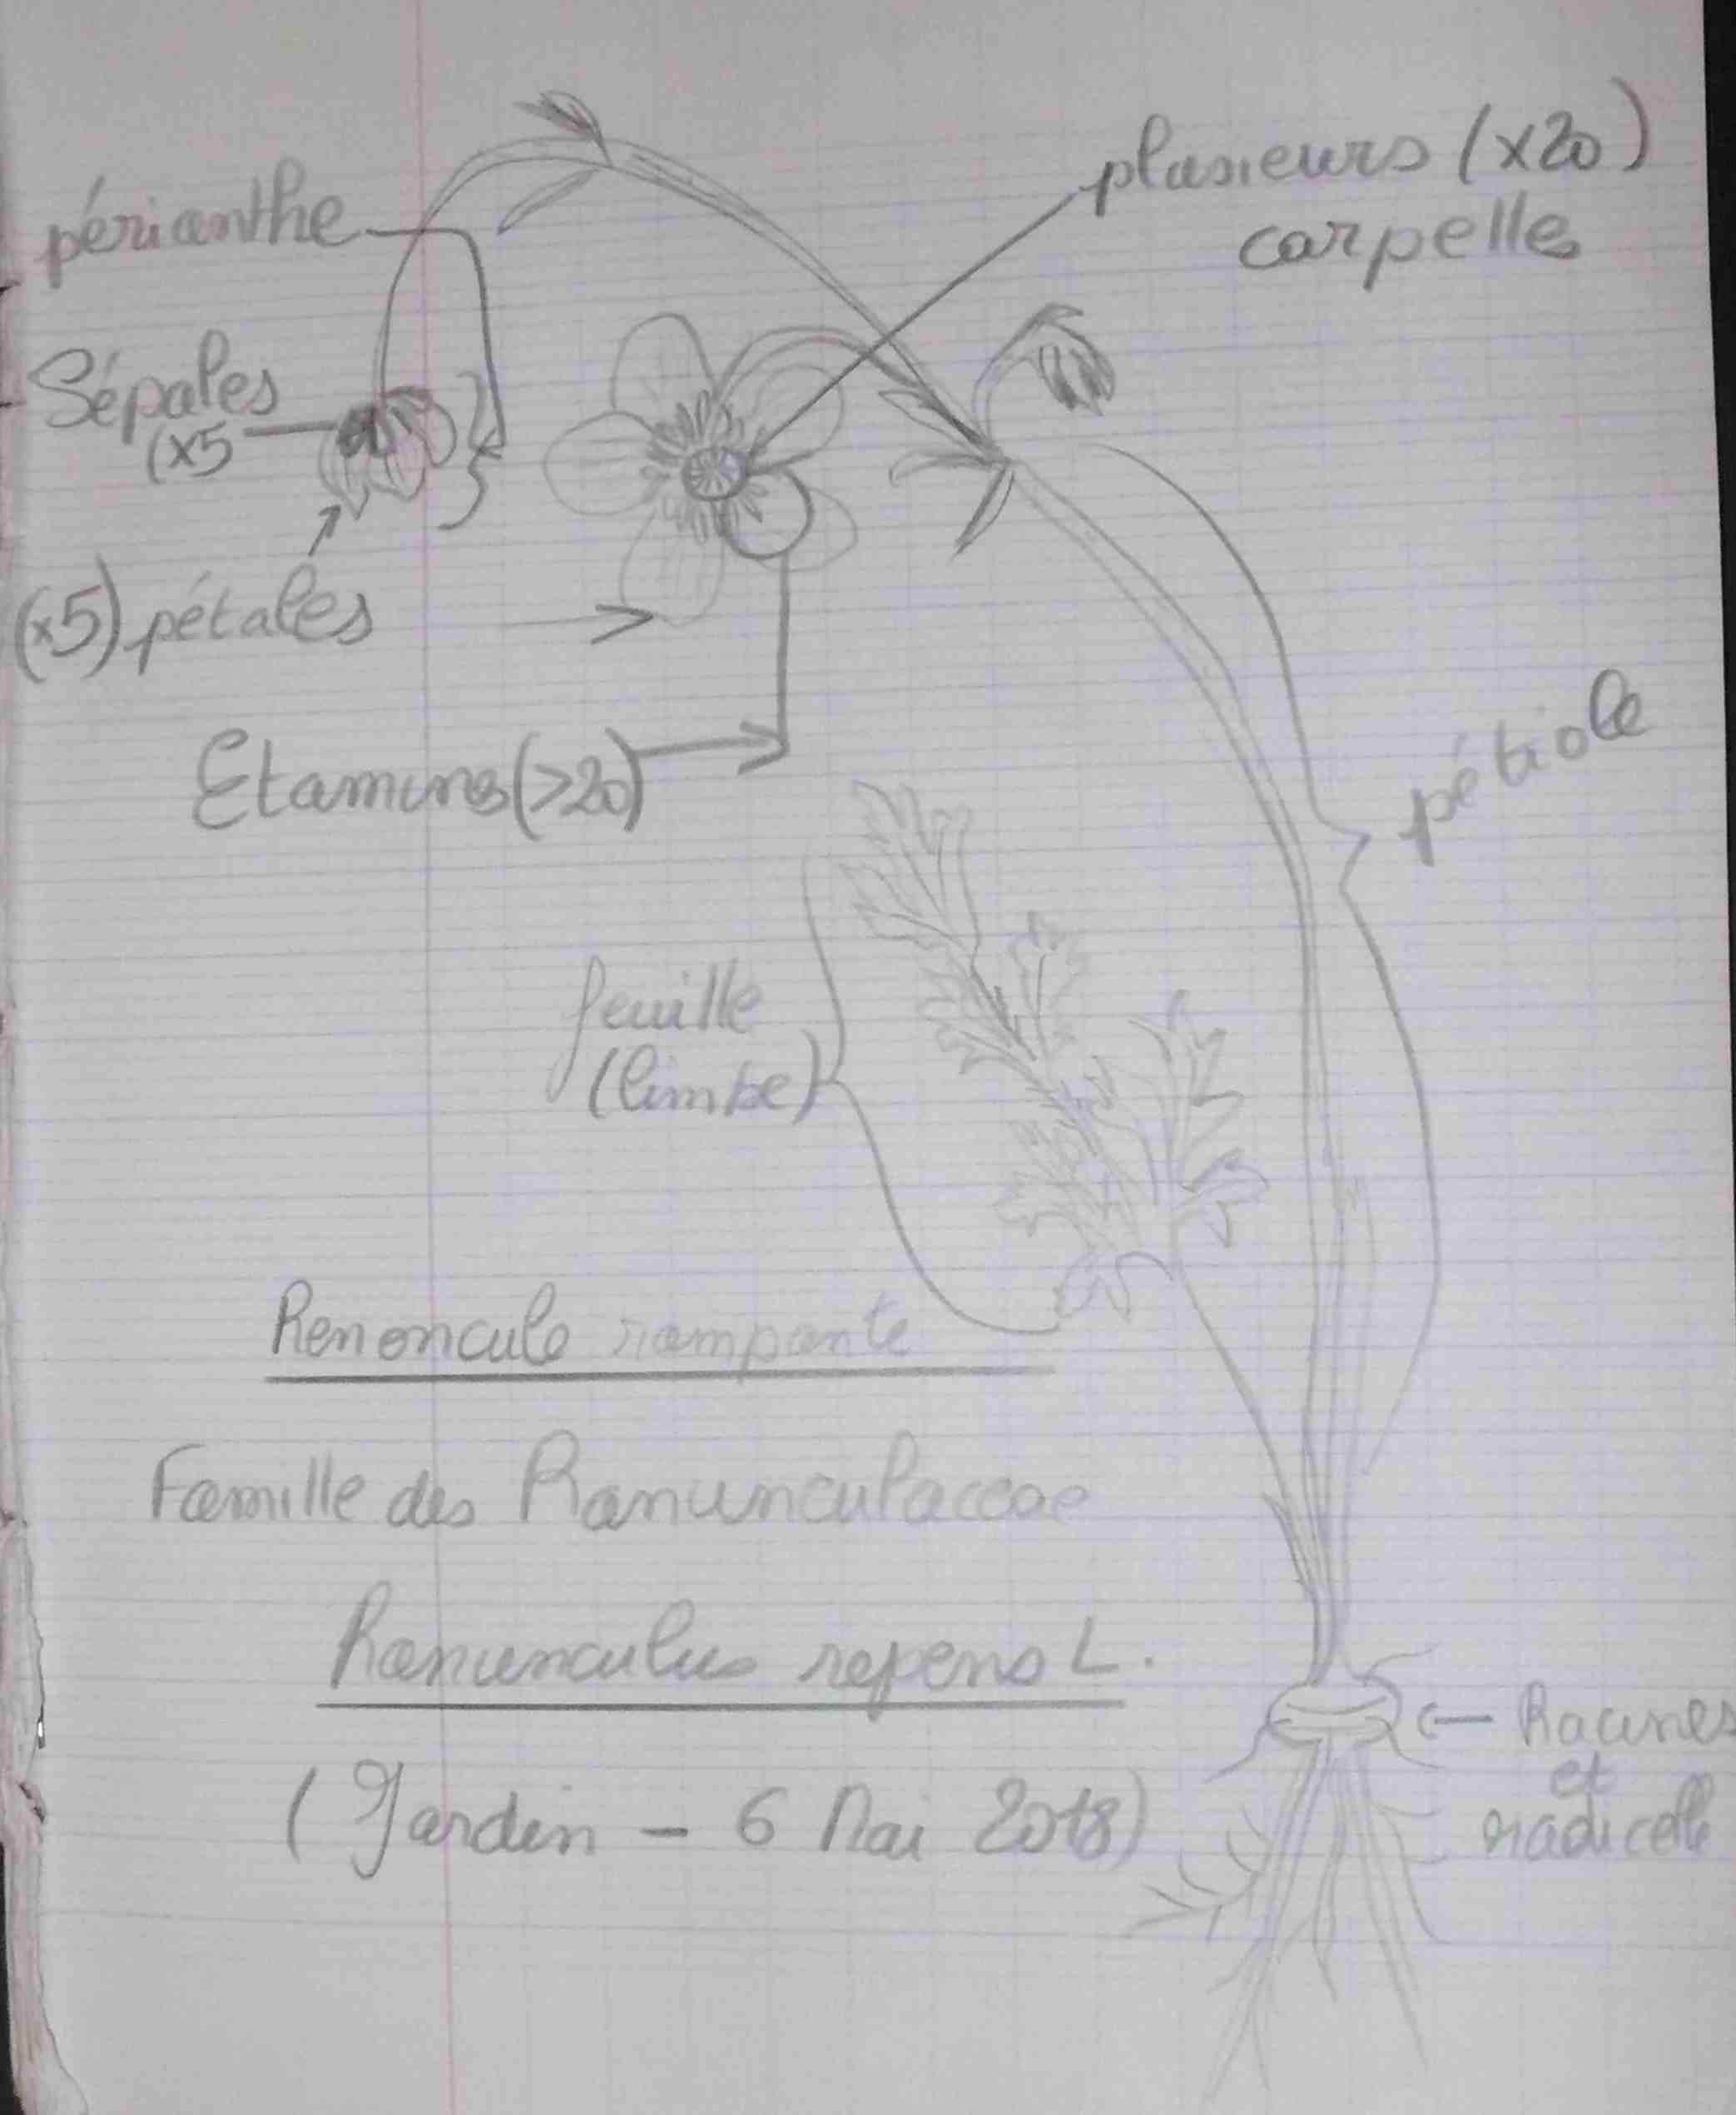 plusieurs (x20)
carpelles
périanthe
Sépales
(x5
(x5) pétales
Etamines (>20)
pétiole
feuille
(limbe)
Renoncule rampante
Famille des Ranunculaceae
Ranunculus repens L.
(Jardin - 6 Mai 2018)
Racines
et
radicelle